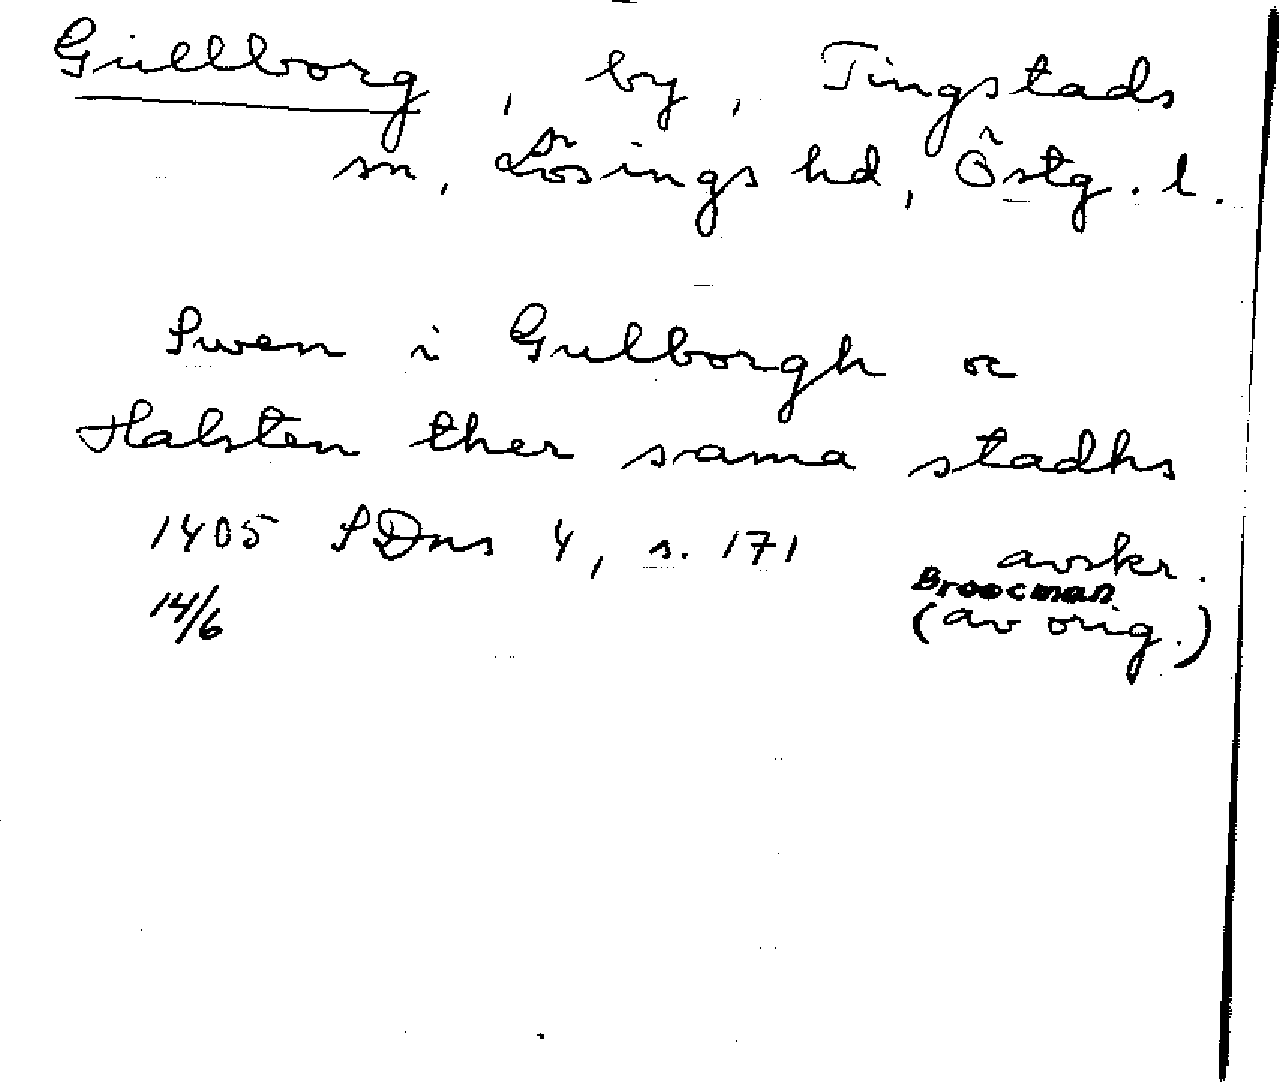 Gullborg, by, Tingstads
sn, Lösings hd, Östg. l.
Swen i Gulborgh oc
Halsten ther sama stadhs
1405 SDns 4, s. 171 avskr.
14/6 Broocman
(av orig.)